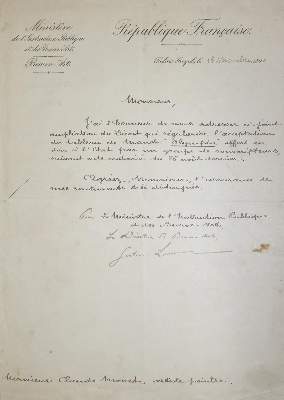 Ministère
de l'Instruction Publique
et des Beaux-Arts.
Beaux-Arts.
République Française.
Palais Royal, le 18 Novembre
Monsieur,
J'ai l'honneur de vous adresser ci-joint
ampliation du décret qui régularise l'acceptation
du tableau de Manet "Olympia" offert en
don à l'Etat par un groupe de souscripteurs,
suivant acte notarié du 26 août dernier.
Agréez, Monsieur, l'assurance de
mes sentiments très distingués.
Pour le Ministre de l'Instruction Publique
et des Beaux-Arts
Le Directeur des Beaux-Arts
Monsieur Claude Monet, artiste peintre.